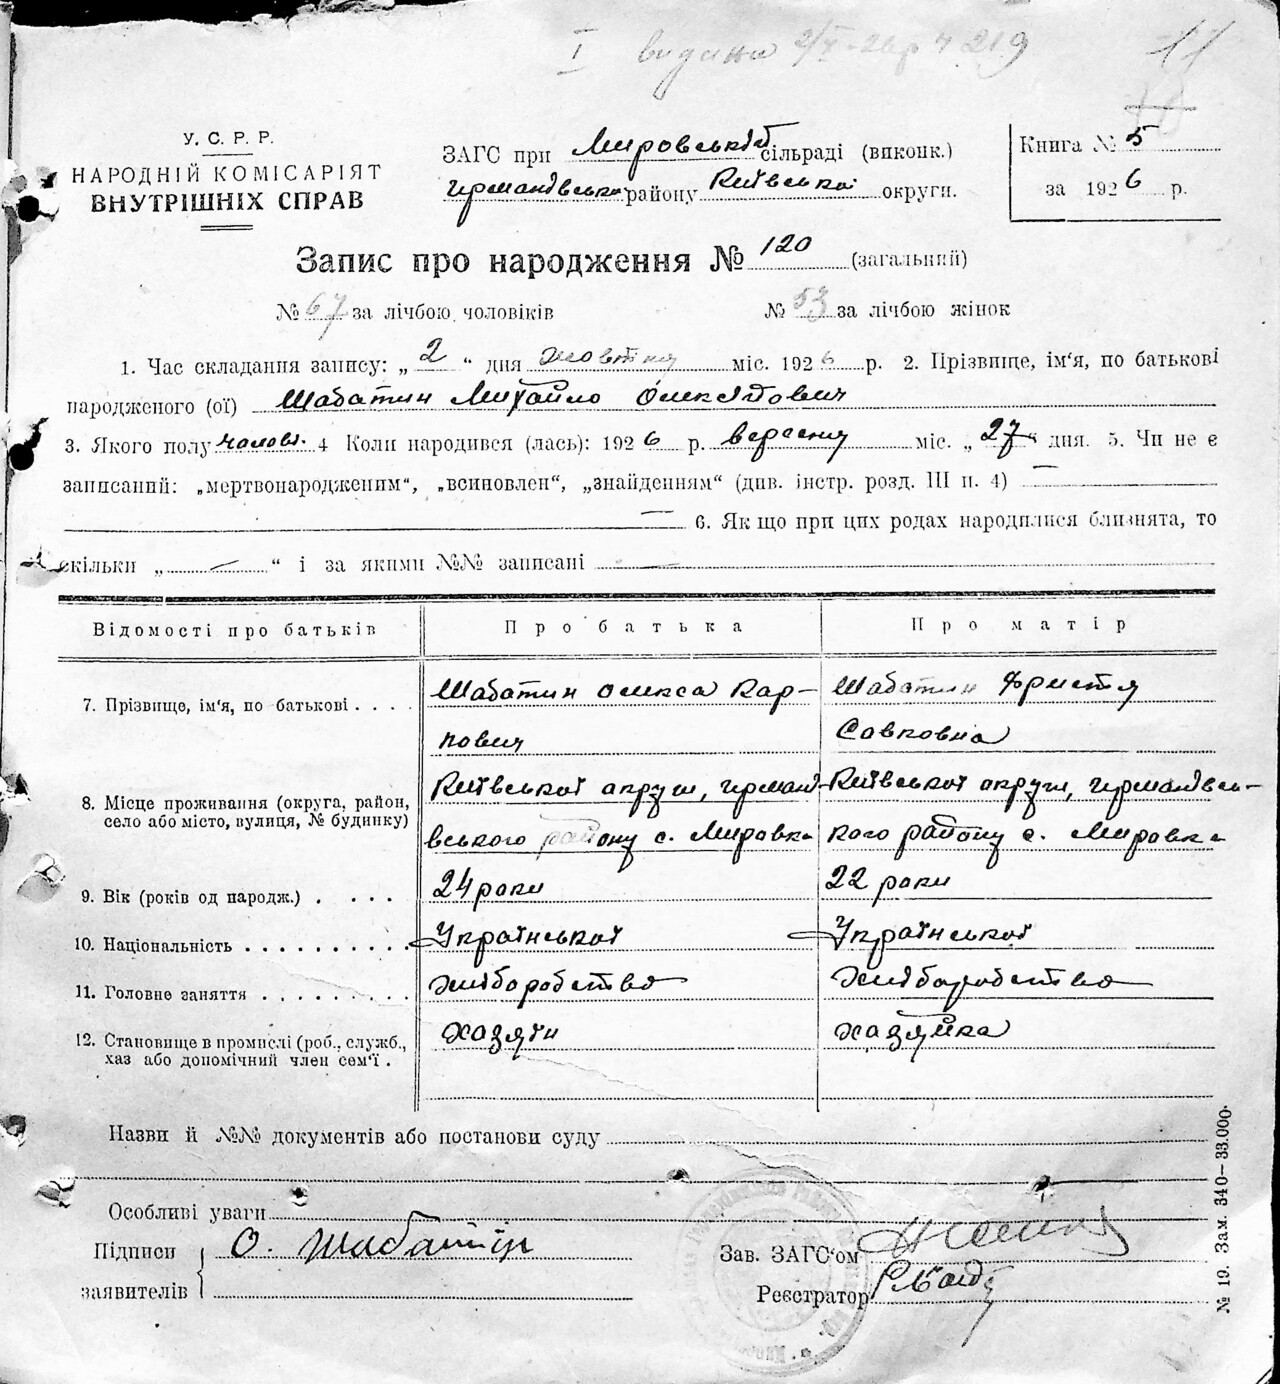 I видана
11
У. С. Р. Р.
НАРОДНІЙ КОМІСАРІЯТ
ВНУТРІШНІХ СПРАВ
ЗАГС при Мировській сільраді (виконк.)
району Київської округи.
Книга № 5
за 1926 р.
Запис про народження № 120 (загальний)
№ 67 за лічбою чоловіків № 53 за лічбою жінок
1. Час складання запису: „ 2 “ дня жовтня міс. 1926 р. 2. Прізвище, ім‘я, по батькові
народженого (ої) Шабатин Михайло
3. Якого полу чолов. 4 Коли народився (лась): 1926 р. вересня міс. „ 27 “ дня. 5. Чи не є
записаний: „мертвонародженим“, „всиновлен“, „знайденням“ (див. інстр. розд. III п. 4) —
— 6. Як що при цих родах народилися близнята, то
скільки „ — “ і за якими №№ записані —
Відомості про батьків Про батька Про матір
7. Прізвище, ім‘я, по батькові . . . . Шабатин Олекса Кар- Шабатин Христя
пович Савковна
8. Місце проживання (округа, район, Київської округи, Київської округи,
село або місто, вулиця, № будинку) вського району с. Мировка кого району с. Мировка
9. Вік (років од народж.) . . . . 24 роки 22 роки
10. Національність . . . . . . . . . . Української Української
11. Головне заняття . . . . . . . . . Хліборобство Хліборобство
12. Становище в промислі (роб., служб., Хазяїн Хазяйка
хаз або допомічний член сем‘ї .
Назви й №№ документів або постанови суду
Особливі уваги
Підписи О. Шабатин Зав. ЗАГС‘ом
заявителів Реєстратор
№ 19. Зам. 340—33.000.